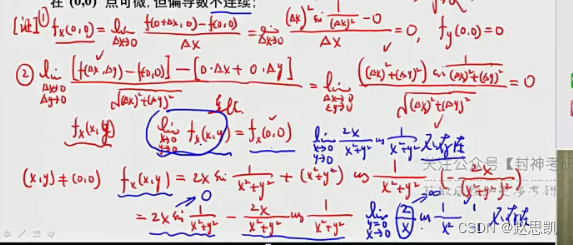 在 (0,0) 点可微, 但偏导数不连续;
[证] ① fₓ(0,0) = lim_{Δx→0} (f(0+Δx,0)-f(0,0))/Δx = lim_{Δx→0} ((Δx)² sin 1/(Δx)² - 0)/Δx = 0, f_y(0,0)=0
② lim_{Δx→0 Δy→0} ([f(Δx,Δy)-f(0,0)]-[0·Δx+0·Δy])/√((Δx)²+(Δy)²) = lim_{Δx→0 Δy→0} (((Δx)²+(Δy)²) sin 1/((Δx)²+(Δy)²))/√((Δx)²+(Δy)²) = 0
fₓ(x,y) lim_{x→0 y→0} fₓ(x,y) = fₓ(0,0) lim_{x→0 y→0} 2x/(x²+y²) cos 1/(x²+y²) 不存在
关注公众号【封神考
(x,y)≠(0,0) fₓ(x,y) = 2x sin 1/(x²+y²) + (x²+y²) cos 1/(x²+y²) (-2x/(x²+y²)²)
= 2x sin 1/(x²+y²) - 2x/(x²+y²) cos 1/(x²+y²) lim_{y=0 x→0} 2/x cos 1/x² 不存在
CSDN @赵思凯